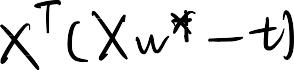 X^T(Xw^* - t)